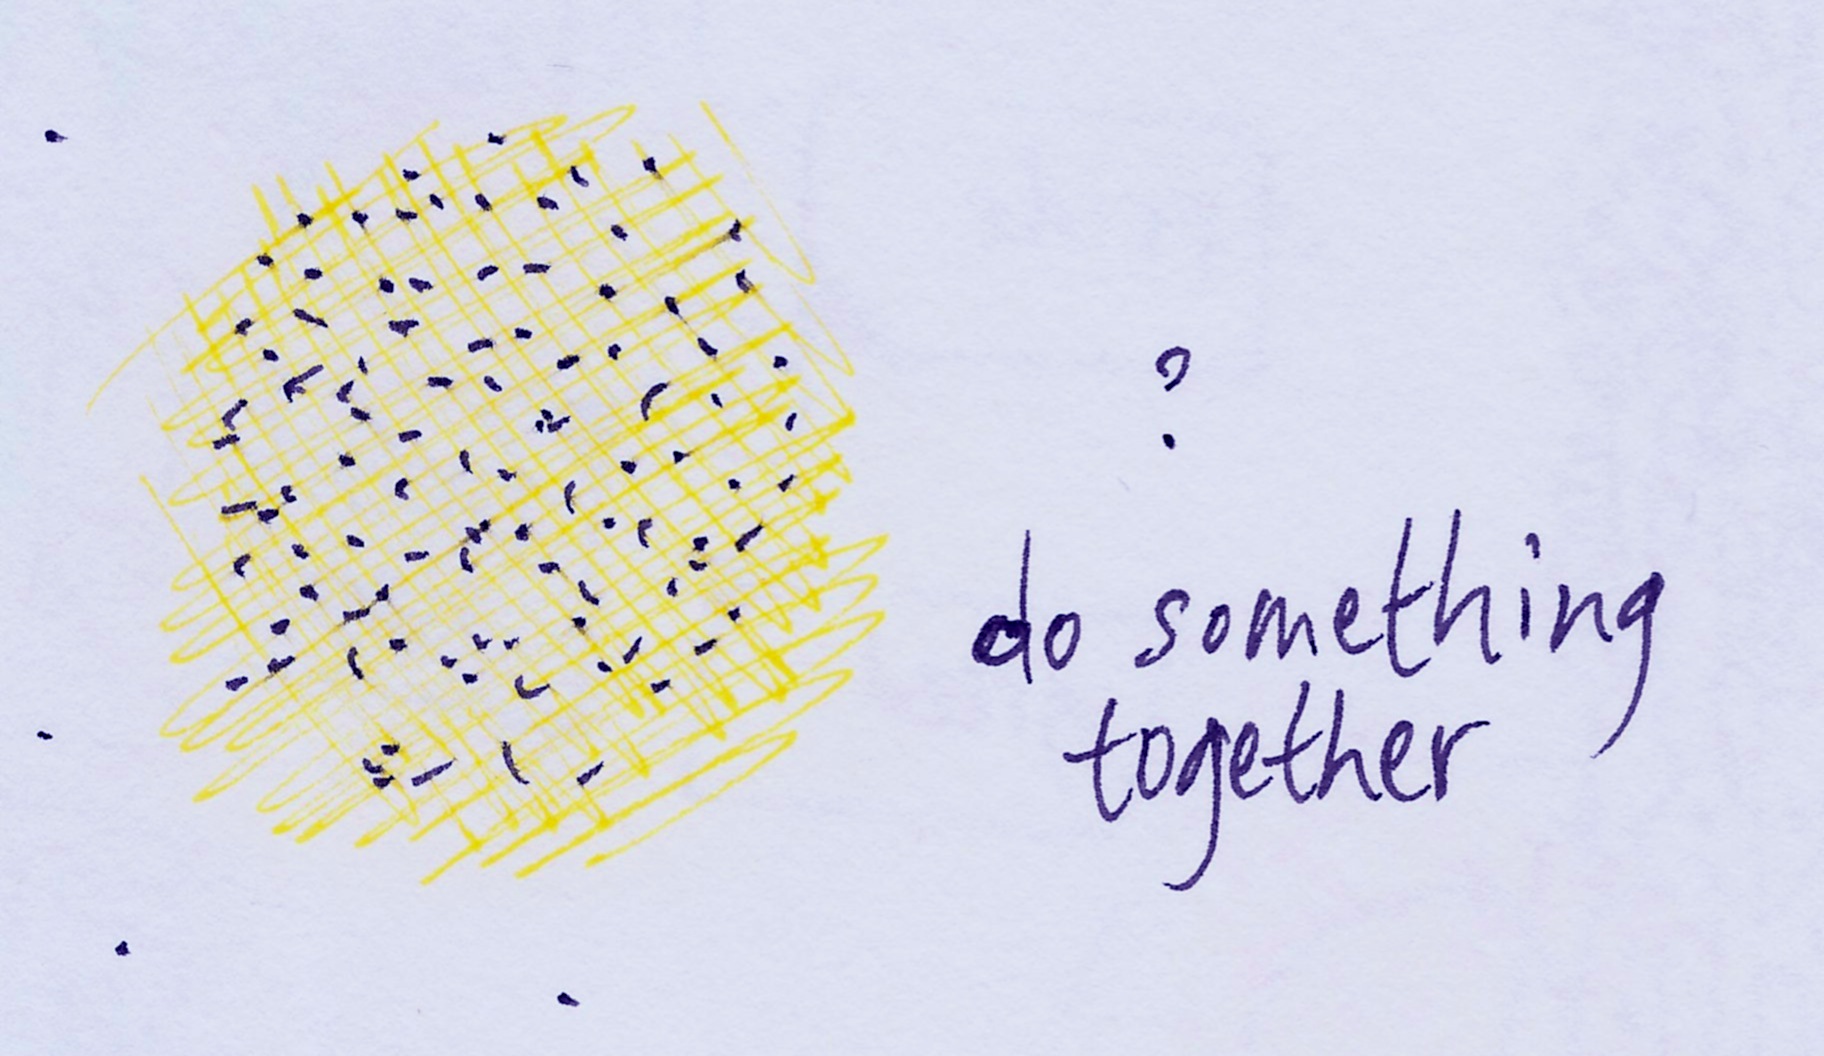 ?
do something
together